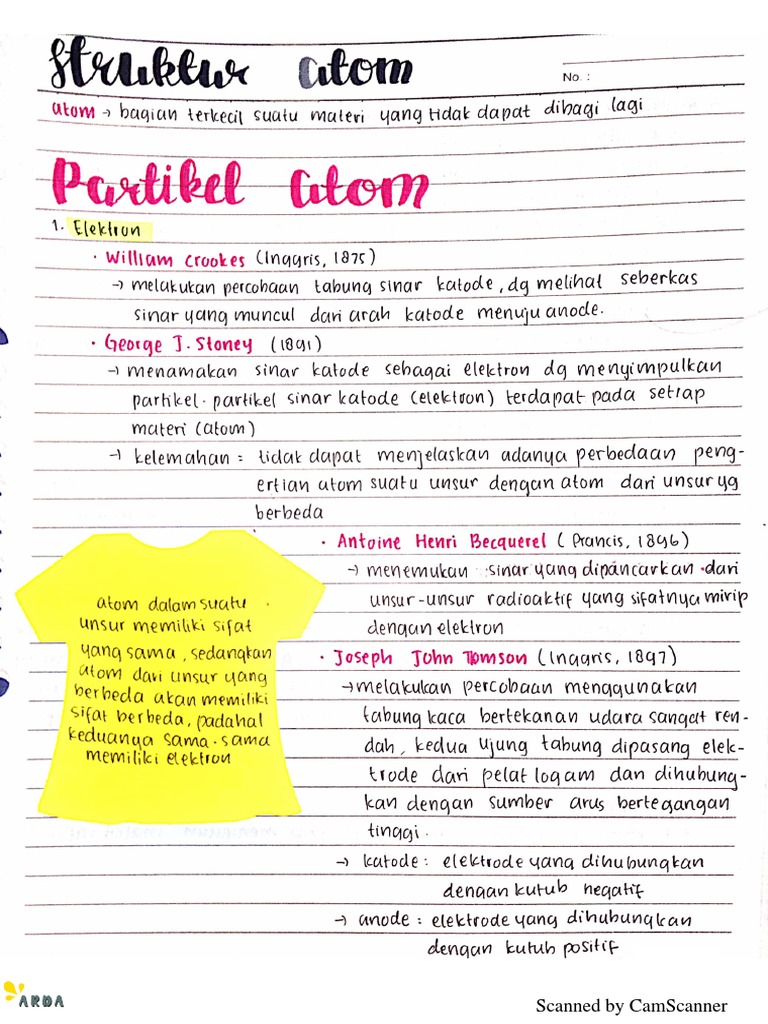 Struktur atom
No. :
atom → bagian terkecil suatu materi yang tidak dapat dibagi lagi
Partikel atom
1. Elektron
· William Crookes (Inggris, 1875)
→ melakukan percobaan tabung sinar katode, dg melihat seberkas
sinar yang muncul dari arah katode menuju anode.
· George J. Stoney (1891)
→ menamakan sinar katode sebagai elektron dg menyimpulkan
partikel-partikel sinar katode (elektron) terdapat pada setiap
materi (atom)
→ kelemahan : tidak dapat menjelaskan adanya perbedaan peng-
ertian atom suatu unsur dengan atom dari unsur yg
berbeda
atom dalam suatu
unsur memiliki sifat
yang sama, sedangkan
atom dari unsur yang
berbeda akan memiliki
sifat berbeda, padahal
keduanya sama-sama
memiliki elektron
· Antoine Henri Becquerel (Prancis, 1896)
→ menemukan sinar yang dipancarkan dari
unsur-unsur radioaktif yang sifatnya mirip
dengan elektron
· Joseph John Tomson (Inggris, 1897)
→ melakukan percobaan menggunakan
tabung kaca bertekanan udara sangat ren-
dah, kedua ujung tabung dipasang elek-
trode dari pelat logam dan dihubung-
kan dengan sumber arus bertegangan
tinggi.
→ katode : elektrode yang dihubungkan
dengan kutub negatif
→ anode : elektrode yang dihubungkan
dengan kutub positif
ARDA
Scanned by CamScanner